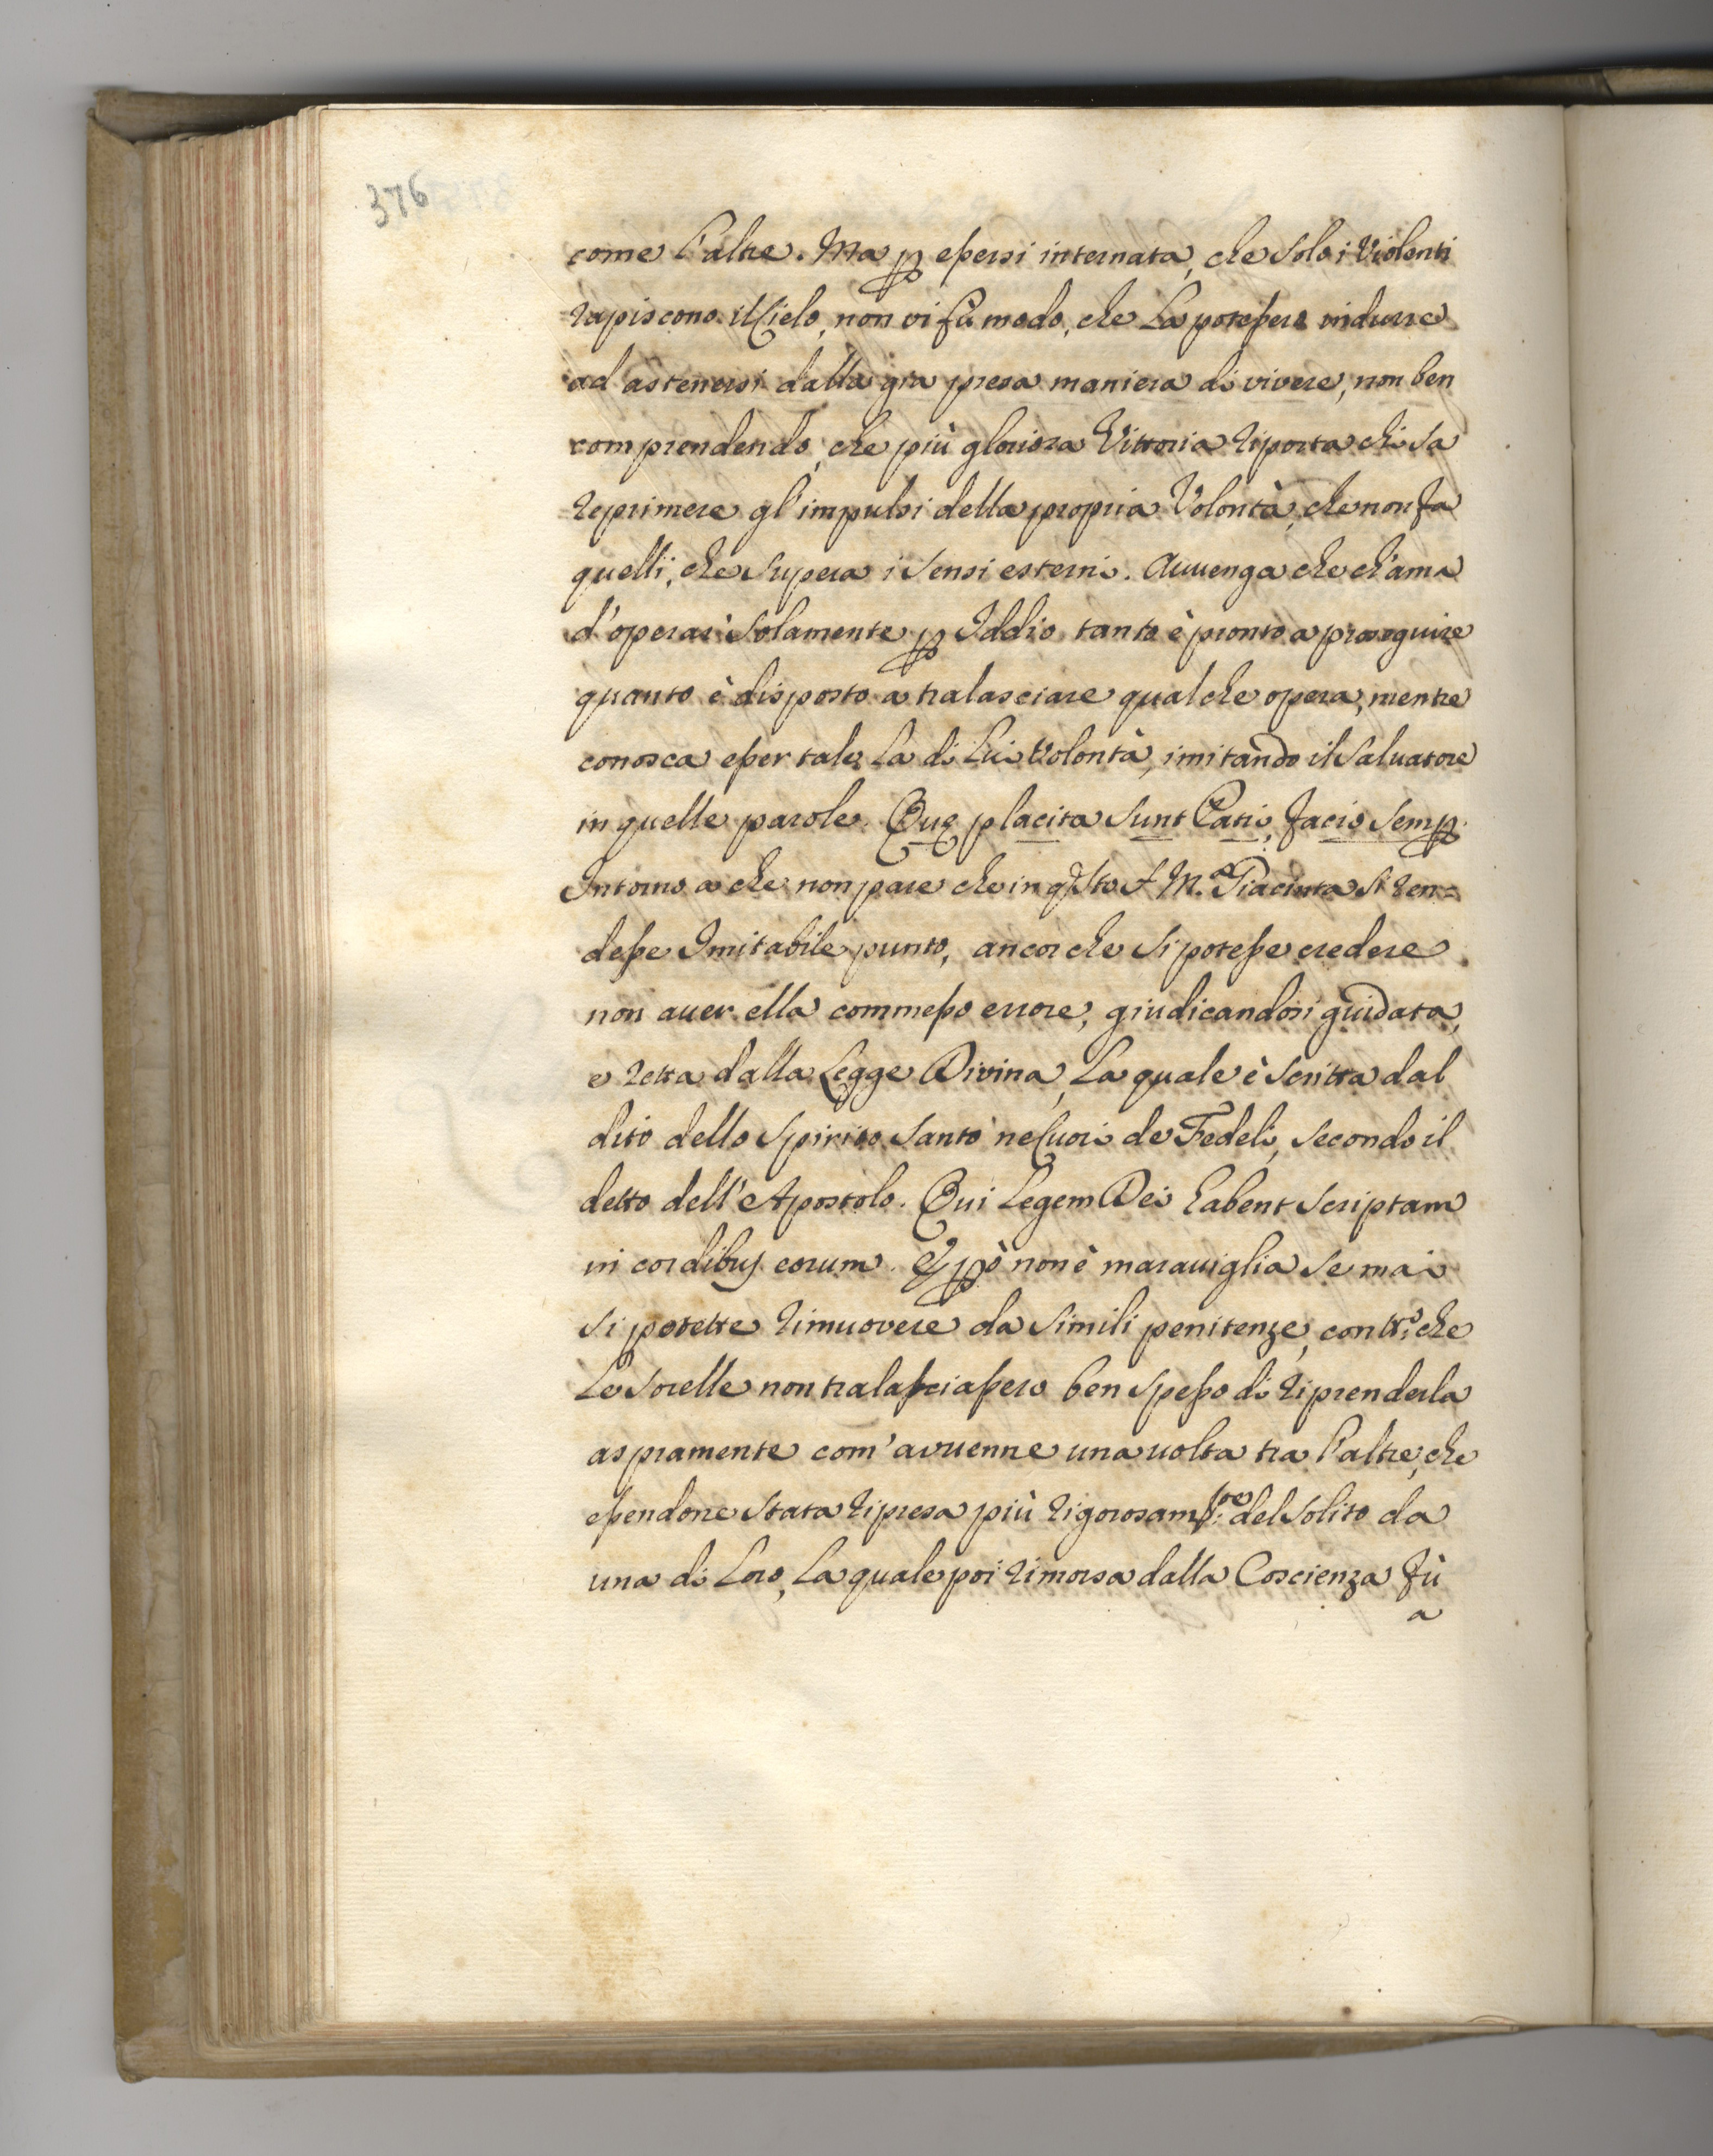 376
come l'altre. Ma p essersi internata, che solo i Violenti
rapiscono il Cielo, non vi fù modo, che La potessero indurre
ad astenersi dalla gia presa maniera di vivere, non ben
comprendendo, che più gloriosa Vittoria riporta chi sa
reprimere gl'impulsi della propria Volontà, che non fa
quelli, che supera i sensi esterni. Auuenga che ch'ama
d'operar solamente p Iddio tanto è pronto a proseguire
quanto è disposto a tralasciare qualche opera, mentre
conosca esser tale La di Lui Volontà, imitando il Saluatore
in quelle parole. Quę placita sunt Patri, facio semp.
Intorno a che non pare che in qsto S. M.a Giacinta si ren=
desse Imitabile punto, ancor che si potesse credere
non auer ella commesso errore, giudicandosi guidata,
e retta dalla Legge Divina, La quale è scritta dal
dito dello Spirito Santo ne Cuori de Fedeli, secondo il
detto dell'Apostolo. Qui Legem Dei habent scriptam
in cordibus eorum. E pò non è marauiglia se mai
si potette rimuovere da simili penitenze, con tt.o che
Le sorelle non tralasciassero ben spesso di riprenderla
aspramente com'avuenne una uolta tra l'altre, che
essendone stata ripresa più rigorosam.te del solito da
una di Loro, La quale poi rimorsa dalla Coscienza fù
a